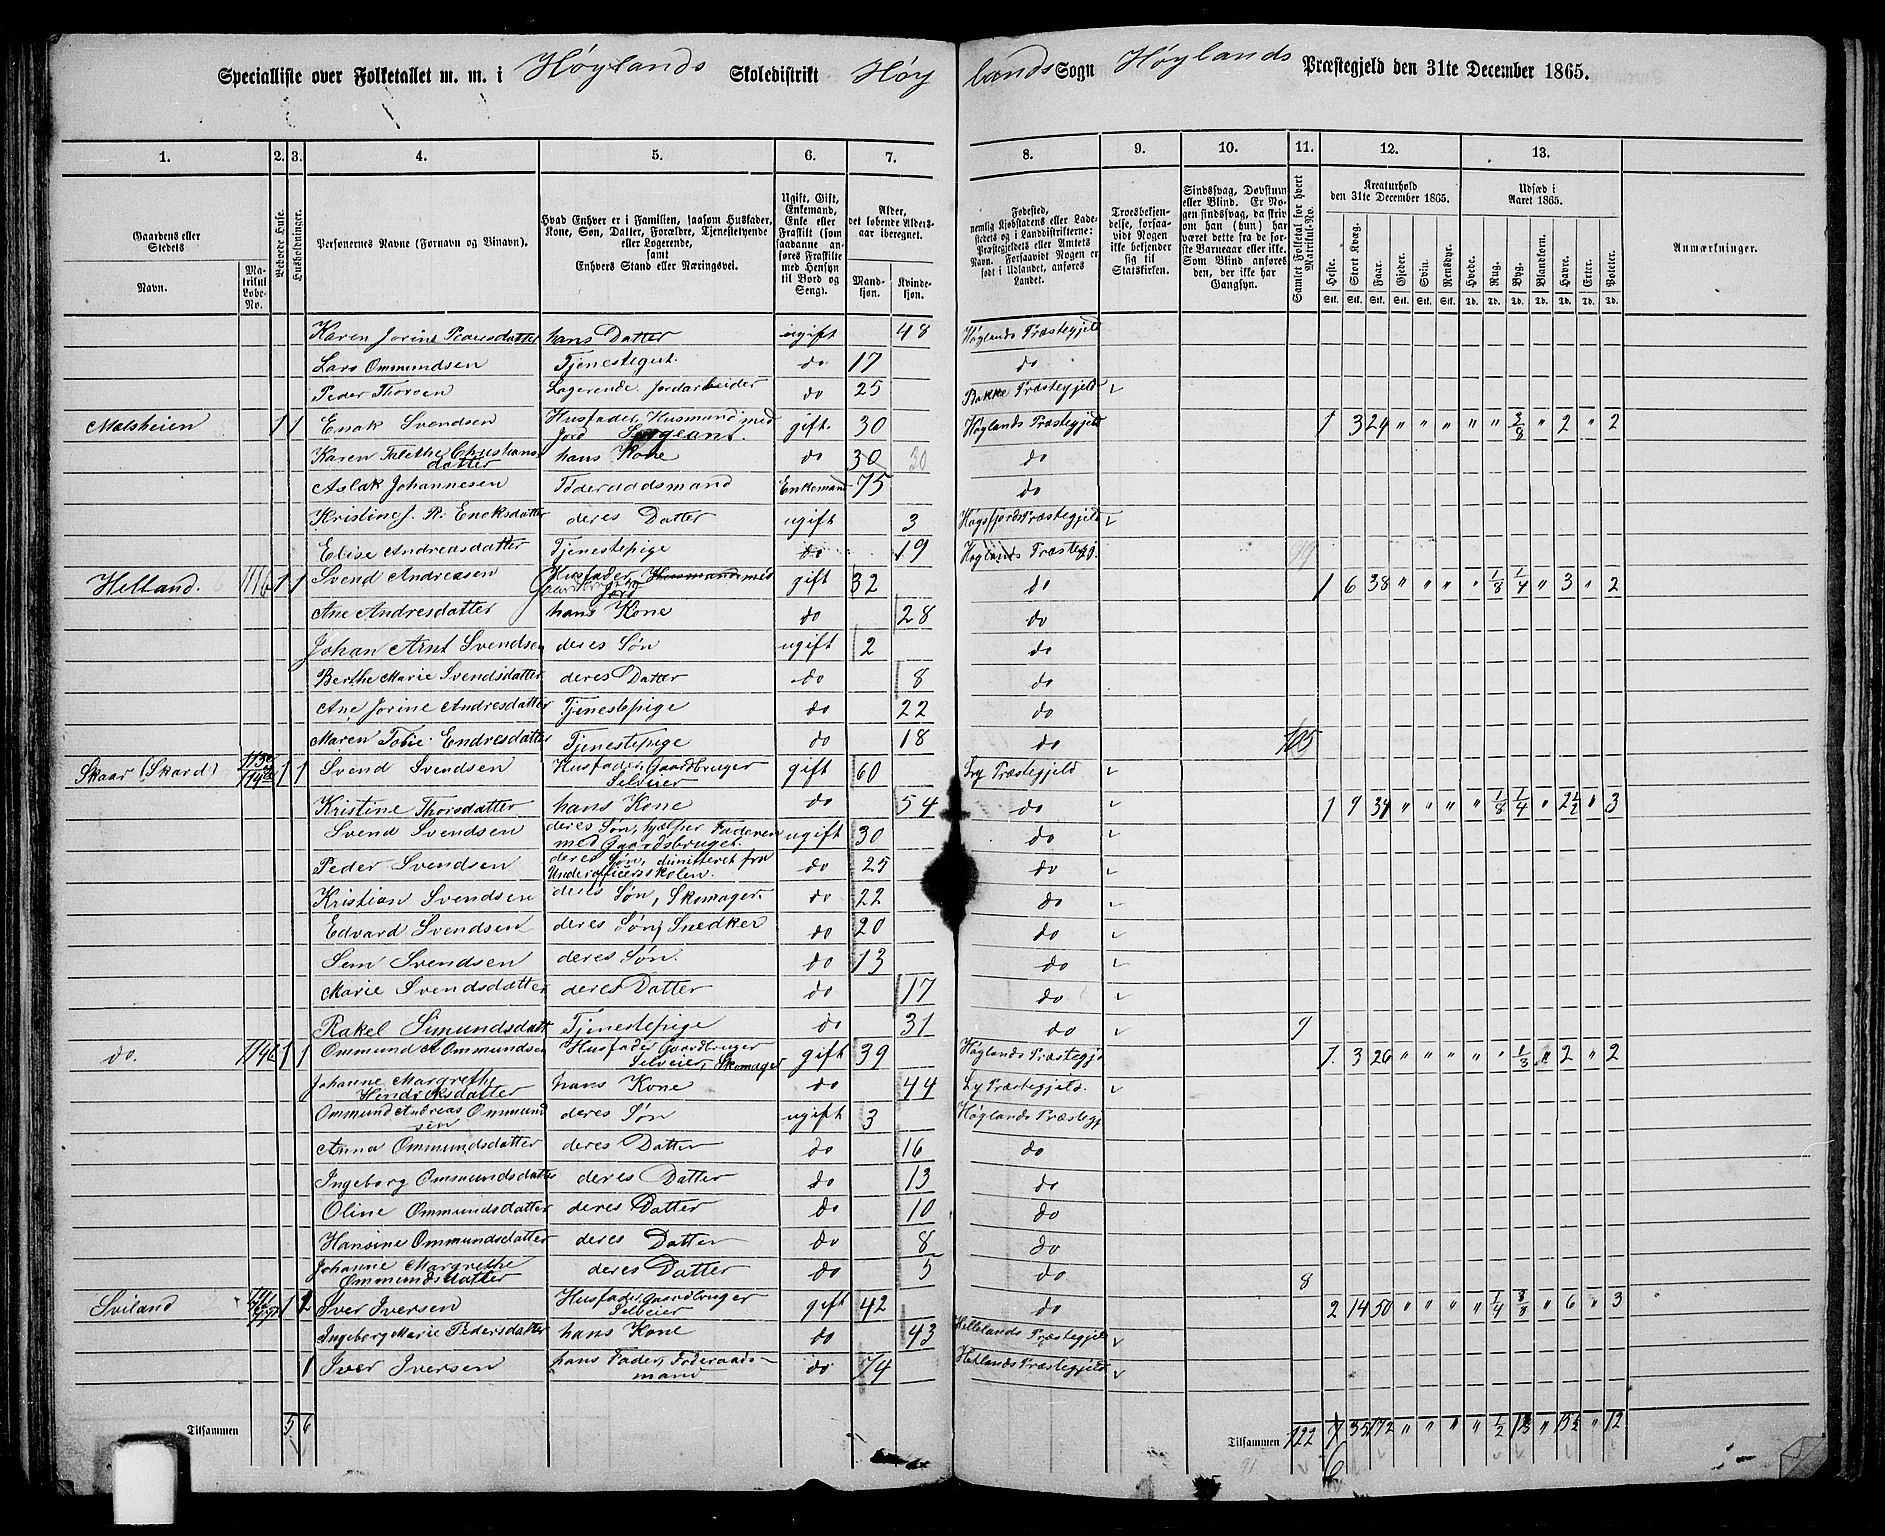 Specialliste over Folketallet m. m. i Høylands Skoledistrikt Høylands Sogn Høylands Præstegjeld den 31te December 1865.
1. 2. 3. 4. 5. 6. 7. 8. 9. 10. 11. 12. 13.
Gaardens eller Stedets
Navn.
Matrikul Løbe-No.
Beboede Huse.
Husholdninger.
Personernes Navne (Fornavn og Tilnavn).
Hvad Enhver er i Familien, saasom Husfader, Kone, Søn, Datter, Forældre, Tjenestetyende eller Logerende, samt Enhvers Stand eller Næringsvei.
Ugift, Gift, Enkemand, Enke eller Fraskilt (som saadanne anføres Fraskilte med Hensyn til Bord og Seng).
Alder, det løbende Aldersaar iberegnet.
Mandkjøn. Kvindekjøn.
Fødested, nemlig Kjøbstadens eller Ladestedets og i Landdistrikterne: Præstegjeldets eller Amtets Navn. Forsaavidt Nogen er født i Udlandet, anføres Landet.
Troesbekjendelse, forsaavidt Nogen ikke bekjender sig til Statskirken.
Sindssvag, Døvstum eller Blind. Er Nogen sindssvag, da skriv om han (hun) har været dette fra de første Barneaar eller ikke. Som Blind anføres den, der ikke har Gangsyn.
Samlet Folketal for hvert Matrikul-No.
Kreaturhold den 31te December 1865.
Heste. Stort Kvæg. Faar. Gjeder. Svin. Rensdyr.
Udsæd i Aaret 1865.
Hvede. Rug. Byg. Blandkorn. Havre. Erter. Poteter.
Anmærkninger.
Karen Jorine Pedersdatter hans Datter ugift 48 Høglands Præstegjeld
Lars Ommundsen Tjenestegut. do 17 do
Peder Thorsen Logerende, Jordarbeider do 25 Bakke Præstegjeld
Malsheien 1 1 Enok Svendsen Husfader, Husmand med Jord Sergeant. gift 30 Høglands Præstegjeld 1 3 24 " " " " " 3/8 " 2 " 2
Karen Christiansdatter hans Kone do 30 30 do
Aslak Johannesen Føderaadsmand Enkemand 75 do
Kristine Enoksdatter deres Datter ugift 3 Høgsfjords Præstegjeld
Elise Andreasdatter Tjenestepige do 19 Høglands Præstegj.
Helland. 1 1 Svend Andreasen Husfader, Husmand med Jord gift 32 do 1 6 38 " " " " 1/8 1/4 " 3 " 2
Ane Andresdatter hans Kone do 28 do
Johan Arnt Svendsen deres Søn ugift 2 do
Berthe Marie Svendsdatter deres Datter do 8 do
Ane Jorine Andresdatter Tjenestepige do 22 do
Maren Endresdatter Tjenestepige do 18 do
Skaar (Skard) 1 1 Svend Svendsen Husfader, Gaardbruger Selveier gift 60 Præstegjeld
Kristine Thorsdatter hans Kone do 54 do 1 9 34 " " " " 1/8 1/4 " 2 1/2 " 3
Svend Svendsen deres Søn, hjælper Faderen med Gaardsbruget. ugift 30 do
Peder Svendsen deres Søn, dimitteret fra Underofficersskolen. do 25 do
Kristian Svendsen deres Søn, Skomager. do 22 do
Edvard Svendsen deres Søn, Snedker do 20 do
Sem Svendsen deres Søn. do 13 do
Marie Svendsdatter deres Datter do 17 do
Rakel Simundsdatt Tjenestepige do 31 do 9
do. 1 1 Ommund A Ommundsen Husfader, Gaardbruger Selveier, Skomager gift 39 Høglands Præstegj 1 3 26 " " " " " 1/3 " 2 " 2
Johanne Margrethe Hendriksdatter hans Kone do 44 Ly Præstegjeld.
Ommund Andreas Ommundsen deres Søn ugift 3 Høglands Præstegj
Anna Ommundsdatter deres Datter do 16 do
Ingeborg Ommundsdatter deres Datter do 13 do
Oline Ommundsdatter deres Datter do 10 do
Hansine Ommundsdatter deres Datter do 8 do
Johanne Margrethe Ommundsdatter deres Datter do 5 do 8
Sviland 1 2 Iver Iversen Husfader, Gaardbruger Selveier gift 42 do 2 14 50 " " " " 1/4 " 6 " 3
Ingeborg Marie Pedersdatter hans Kone do 43 Hellelands Præstegjeld
1 Iver Iversen hans Fader, Føderaadsmand do 74 Hetlands Præstegjeld
Tilsammen 5 6
Tilsammen 122 7 35 172 " " " " 1/2 " " 12
91 6